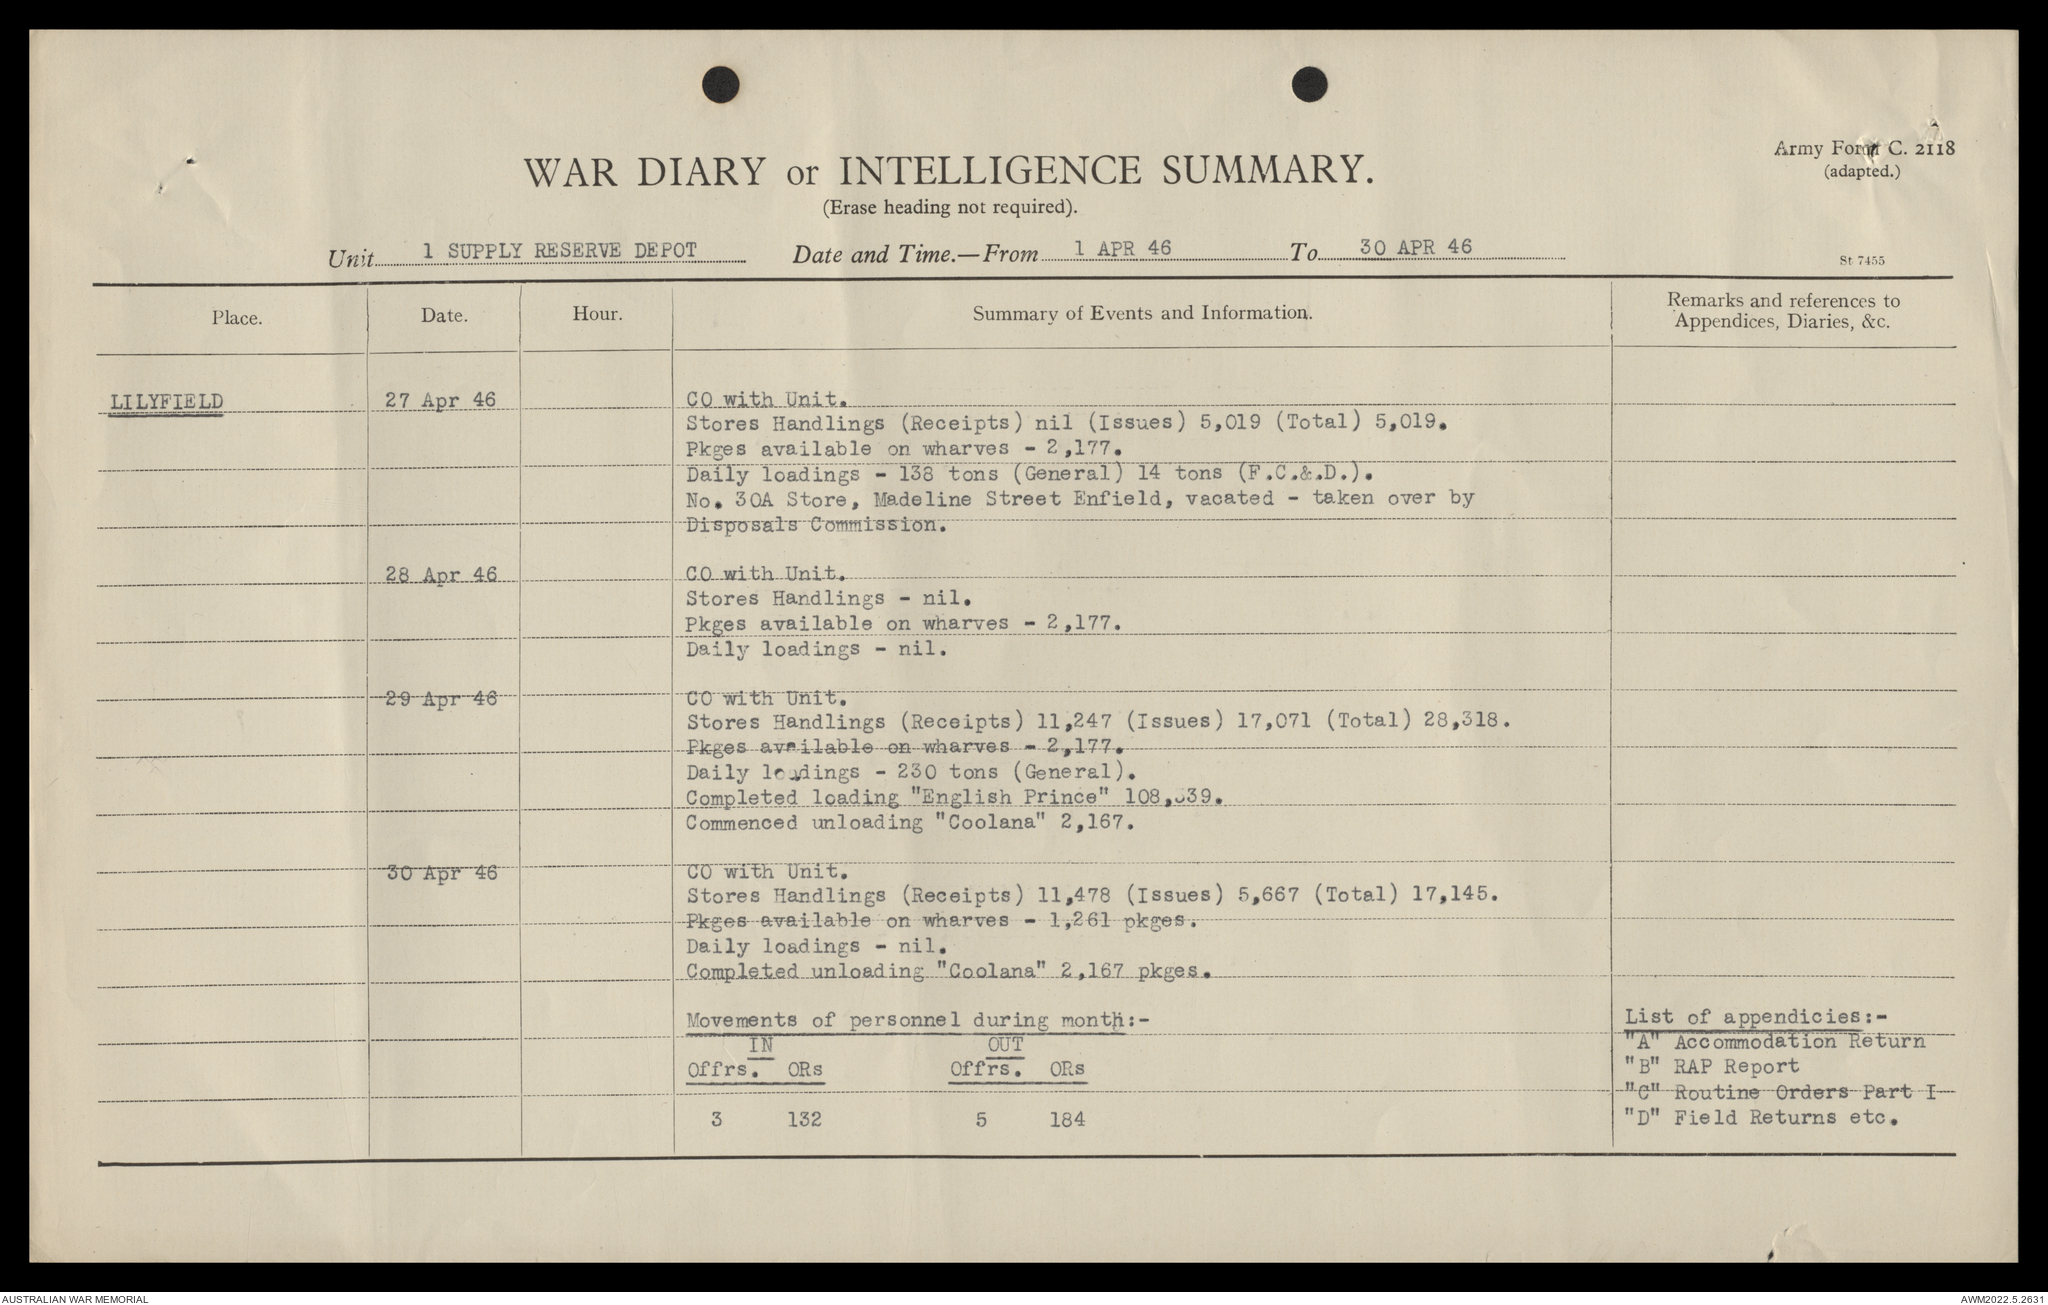 Army Form C. 2118
(adapted.)
WAR DIARY or INTELLIGENCE SUMMARY.
(Erase heading not required).
Unit 1 SUPPLY RESERVE DEPOT Date and Time.—From 1 APR 46 To 30 APR 46
St 7455
Place. Date. Hour. Summary of Events and Information. Remarks and references to
Appendices, Diaries, &c.
LILYFIELD 27 Apr 46 CO with Unit.
Stores Handlings (Receipts) nil (Issues) 5,019 (Total) 5,019.
Pkges available on wharves - 2,177.
Daily loadings - 138 tons (General) 14 tons (F.C.&.D.).
No. 30A Store, Madeline Street Enfield, vacated - taken over by
Disposals Commission.
28 Apr 46 CO with Unit.
Stores Handlings - nil.
Pkges available on wharves - 2,177.
Daily loadings - nil.
29 Apr 46 CO with Unit.
Stores Handlings (Receipts) 11,247 (Issues) 17,071 (Total) 28,318.
Pkges available on wharves - 2,177.
Daily loadings - 230 tons (General).
Completed loading "English Prince"
Commenced unloading "Coolana" 2,167.
30 Apr 46 CO with Unit.
Stores Handlings (Receipts) 11,478 (Issues) 5,667 (Total) 17,145.
Pkges available on wharves - 1,261 pkges.
Daily loadings - nil.
Completed unloading "Coolana" 2,167 pkges.
Movements of personnel during month:-
IN OUT
Offrs. ORs Offrs. ORs
3 132 5 184
List of appendicies:-
"A" Accommodation Return
"B" RAP Report
"C" Routine Orders Part I
"D" Field Returns etc.
AUSTRALIAN WAR MEMORIAL AWM2022.5.2631